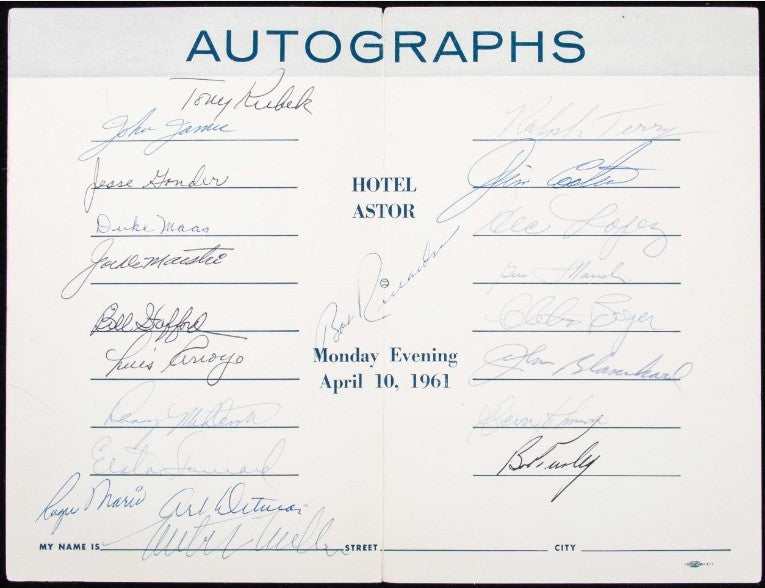 AUTOGRAPHS
Tony Kubek
John James
Jesse Gonder
Duke Maas
Joe DiMaggio
Bill Stafford
Luis Arroyo
Danny McDevitt
Elston Howard
Roger Maris Art Ditmar
HOTEL
ASTOR
Bob
Monday Evening
April 10, 1961
Ralph Terry
Jim Coates
Hec Lopez
Gus
Cletis Boyer
John Blanchard
Deron Johnson
Bob Turley
MY NAME IS STREET CITY